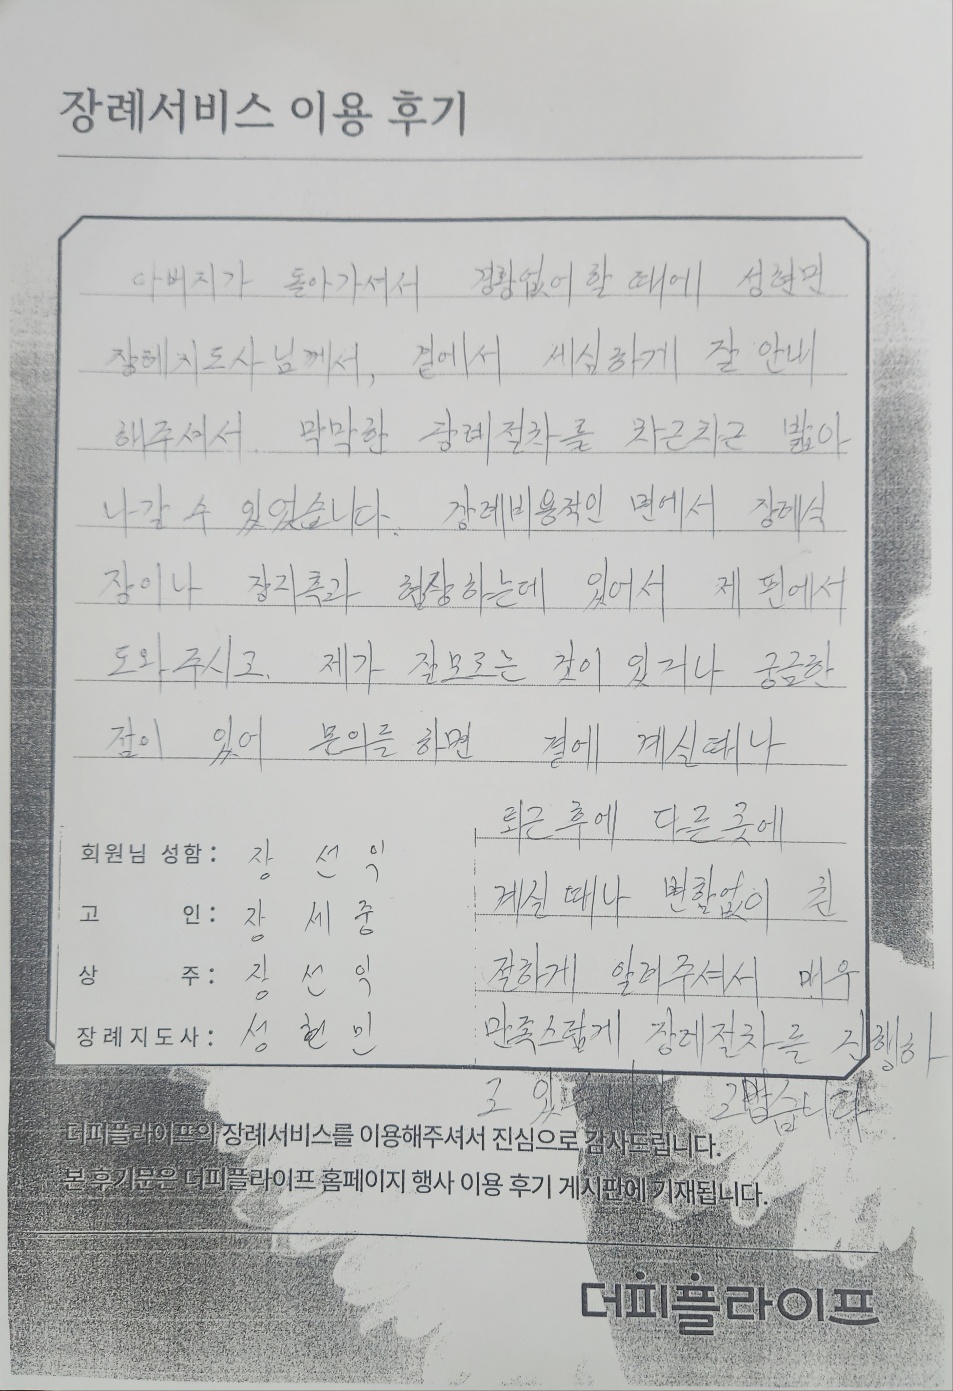 장례서비스 이용 후기
아버지가 돌아가셔서 경황없어할 때에 성현민
장례지도사님께서, 곁에서 세심하게 잘 안내
해주셔서. 막막한 장례절차를 차근차근 밟아
나갈 수 있었습니다. 장례비용적인 면에서 장례식
장이나 장지측과 협장하는데 있어서 제 편에서
도와주시고. 제가 잘모르는 것이 있거나 궁금한
점이 있어 문의를 하면 곁에 계실때나
퇴근 후에 다른 곳에
계실 때나 변함없이 친
절하게 알려주셔서 매우
만족스럽게 장례절차를 진행하
고 있 고맙습니다
회원님 성함: 장선익
고 인: 장세중
상 주: 장선익
장례지도사: 성현민
더피플라이프의 장례서비스를 이용해주셔서 진심으로 감사드립니다.
본 후기문은 더피플라이프 홈페이지 행사 이용 후기 게시판에 기재됩니다.
더피플라이프